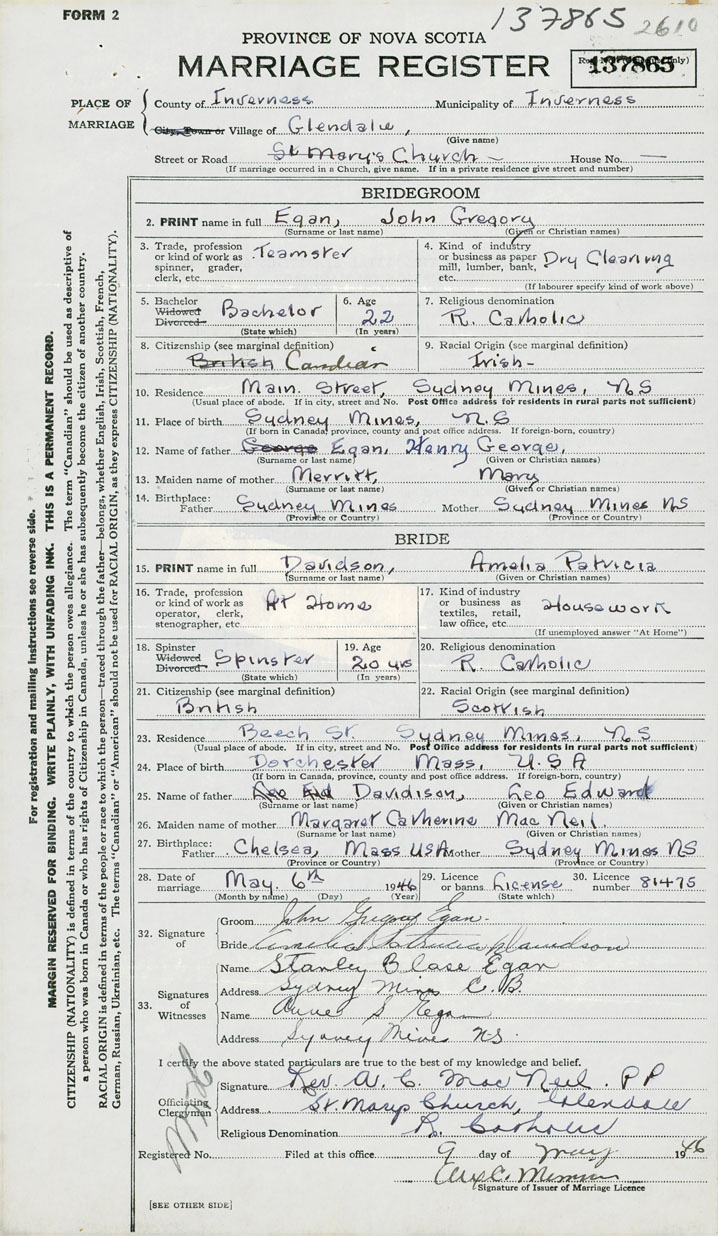 FORM 2
137865 2610
PROVINCE OF NOVA SCOTIA
MARRIAGE REGISTER
137865
PLACE OF MARRIAGE
County of Inverness Municipality of Inverness
City, Town or Village of Glendale,
(Give name)
Street or Road St Mary's Church – House No. —
(If marriage occurred in a Church, give name. If in a private residence give street and number)
BRIDEGROOM
2. PRINT name in full Egan, John Gregory
(Surname or last name) (Given or Christian names)
3. Trade, profession or kind of work as spinner, grader, clerk, etc. Teamster
4. Kind of industry or business as paper mill, lumber, bank, etc. Dry Cleaning
(If labourer specify kind of work above)
5. Bachelor Widowed Divorced Bachelor
(State which)
6. Age 22
(In years)
7. Religious denomination
R. Catholic
8. Citizenship (see marginal definition)
British Candian
9. Racial Origin (see marginal definition)
Irish-
10. Residence Main. Street, Sydney Mines, NS
(Usual place of abode. If in city, street and No. Post Office address for residents in rural parts not sufficient)
11. Place of birth Sydney Mines, N.S
(If born in Canada, province, county and post office address. If foreign-born, country)
12. Name of father George Egan, Henry George,
(Surname or last name) (Given or Christian names)
13. Maiden name of mother Merritt, Mary
(Surname or last name) (Given or Christian names)
14. Birthplace: Father Sydney Mines Mother Sydney Mines NS
(Province or Country) (Province or Country)
BRIDE
15. PRINT name in full Davidson, Amelia Patricia
(Surname or last name) (Given or Christian names)
16. Trade, profession or kind of work as operator, clerk, stenographer, etc. At Home
17. Kind of industry or business as textiles, retail, law office, etc. Housework
(If unemployed answer "At Home")
18. Spinster Widowed Divorced Spinster
(State which)
19. Age 20 yrs
(In years)
20. Religious denomination
R. Catholic
21. Citizenship (see marginal definition)
British
22. Racial Origin (see marginal definition)
Scottish
23. Residence Beech St. Sydney Mines, NS
(Usual place of abode. If in city, street and No. Post Office address for residents in rural parts not sufficient)
24. Place of birth Dorchester Mass, U.S.A
(If born in Canada, province, county and post office address. If foreign-born, country)
25. Name of father Davidison, Leo Edward
(Surname or last name) (Given or Christian names)
26. Maiden name of mother Margaret Catherine Mac Neil
(Surname or last name) (Given or Christian names)
27. Birthplace: Father Chelsea, Mass USA Mother Sydney Mines NS
(Province or Country) (Province or Country)
28. Date of marriage May. 6th 1946
(Month by name) (Day) (Year)
29. License or banns License
(State which)
30. License number 81475
32. Signature of
Groom John Gregory Egan.
Bride Amelia Patricia Davidson
33. Signatures of Witnesses
Name Stanley Blase Egan
Address Sydney Mines C.B.
Name S Egan
Address Sydney Mines N.S.
I certify the above stated particulars are true to the best of my knowledge and belief.
Officiating Clergyman
Signature Rev. A. C. Mac Neil. PP
Address St. Marys Church, Glendale
Religious Denomination R. Catholic
Registered No. Filed at this office 9 day of May 1946
Signature of Issuer of Marriage Licence
[SEE OTHER SIDE]
For registration and mailing instructions see reverse side.
MARGIN RESERVED FOR BINDING. WRITE PLAINLY, WITH UNFADING INK. THIS IS A PERMANENT RECORD.
CITIZENSHIP (NATIONALITY) is defined in terms of the country to which the person owes allegiance. The term "Canadian" should be used as descriptive of
a person who was born in Canada or who has rights of Citizenship in Canada, unless he or she has subsequently become the citizen of another country.
RACIAL ORIGIN is defined in terms of the people or race to which the person—traced through the father—belongs, whether English, Irish, Scottish, French,
German, Russian, Ukrainian, etc. The terms "Canadian" or "American" should not be used for RACIAL ORIGIN, as they express CITIZENSHIP (NATIONALITY).